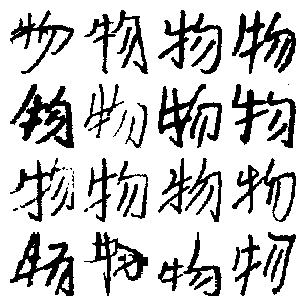 物物物物
物物物物
物物物物
物物物物